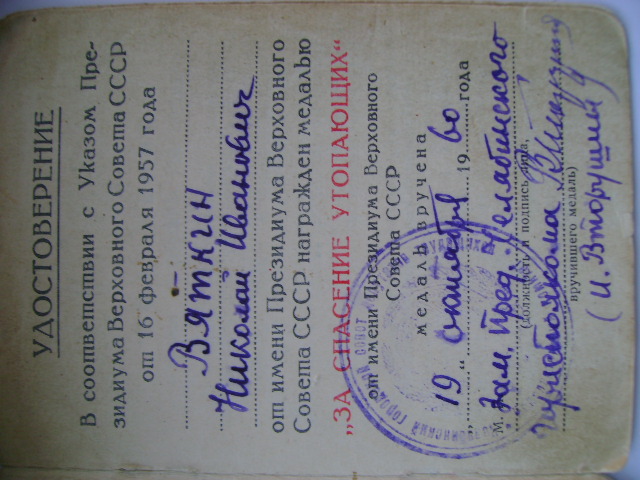 УДОСТОВЕРЕНИЕ
В соответствии с Указом Пре-
зидиума Верховного Совета СССР
от 16 февраля 1957 года
Вяткин
Николай Иванович
от имени Президиума Верховного
Совета СССР награжден медалью
„ЗА СПАСЕНИЕ УТОПАЮЩИХ“
от имени Президиума Верховного
Совета СССР
медаль вручена
„19“ октября 1960 года
М. Зам. Пред. Челябинского
(должность и подпись лица,
горисполкома
вручившего медаль)
(И. Вторушин)